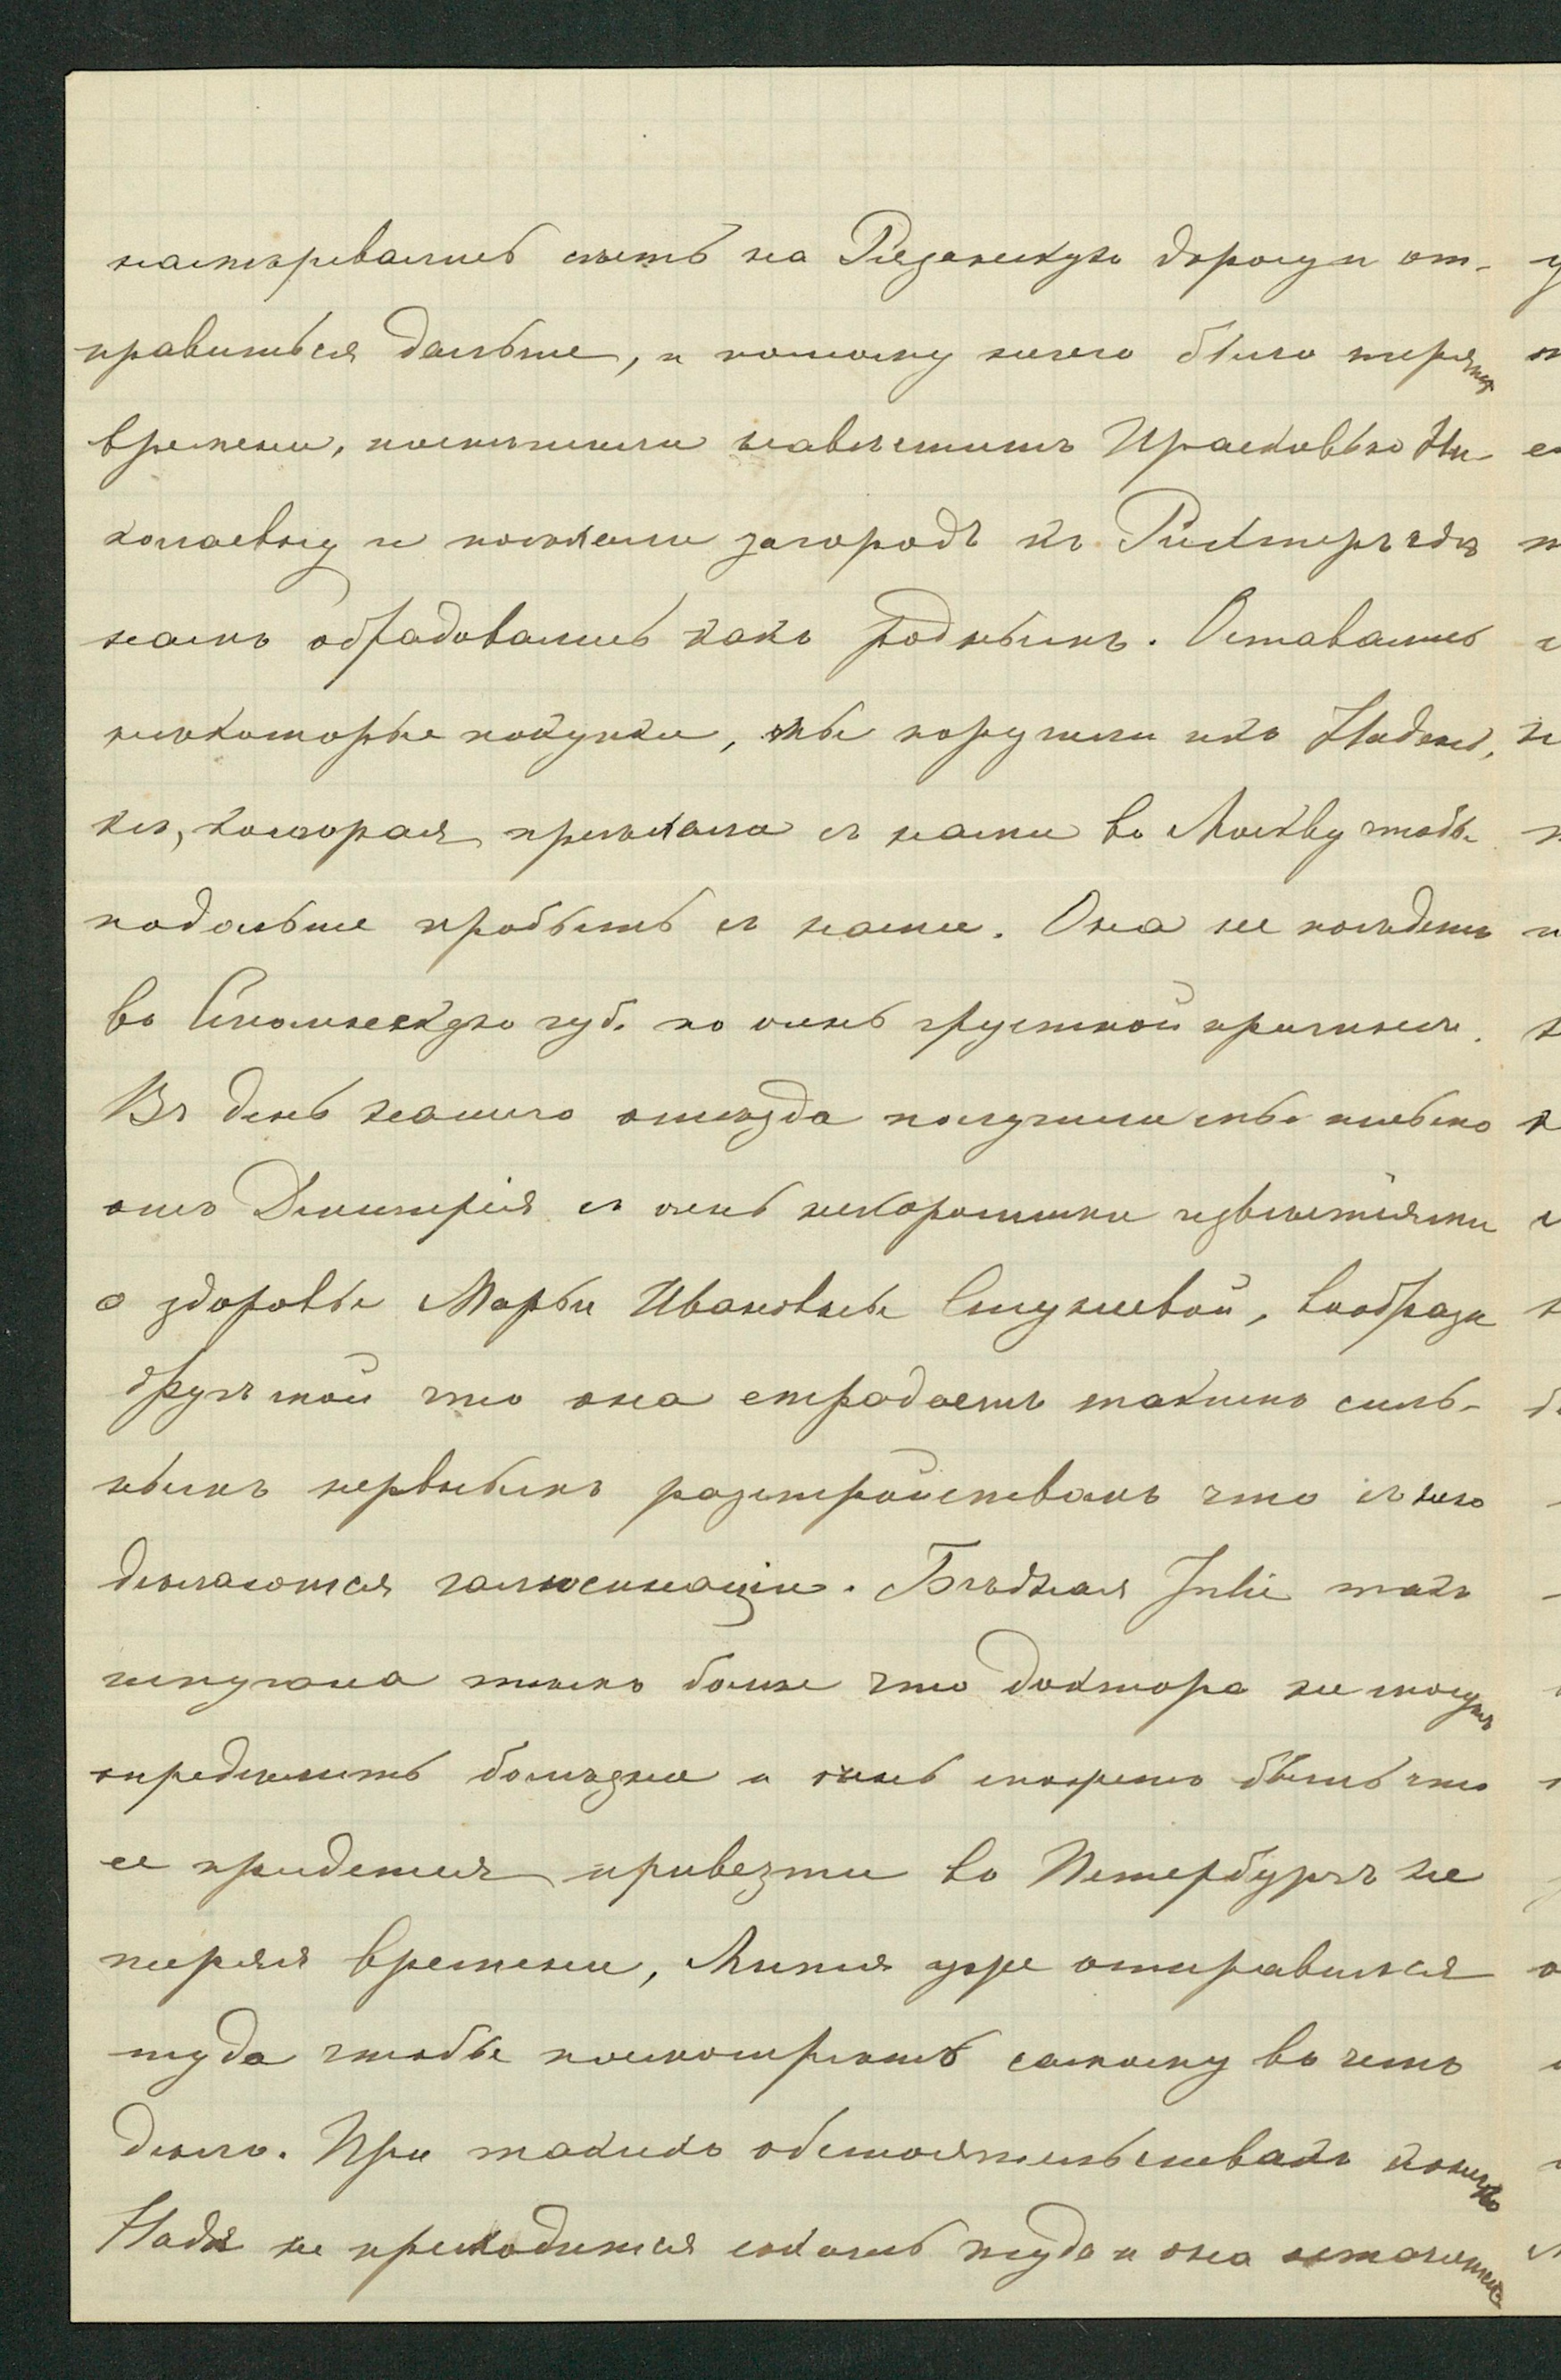 настаревались сѣсть на Рязанскую дорогу и от-
правиться дальше, и потому нечего было терять
времени, поспѣшили навѣстить Прасковью Ни-
колаевну и поѣхали загородъ къ Рихтеръ гдѣ
намъ обрадовались какъ роднымъ. Оставались
нѣкоторые покупки, мы поручили ихъ Надень,
кѣ, которая пріѣхала съ нами въ Москву чтобы
подольше пробыть съ нами. Она не поѣдетъ
въ Смоленскую губ. по очень грустной причинѣ.
Въ день нашего отъѣзда получили мы письмо
отъ Димитрія съ очень нехорошими извѣстіями
о здоровьи Марьи Ивановны, вообрази
другъ мой что она страдаетъ такимъ силь-
нымъ нервнымъ разстройствамъ что съ нею
дѣлаются галюсинаціи. Бѣдная Julie такъ
испугана тѣмъ болѣе что доктора не могутъ
опредѣлить болѣзни и очень можетъ быть что
ее придется привезти въ Петербургъ не
теряя времени, Митя уже отправился
туда чтобы посмотрѣть самому въ чемъ
дѣло. При такихъ обстоятельствахъ конечно
Надѣ не приходится ѣхать туда и она останется